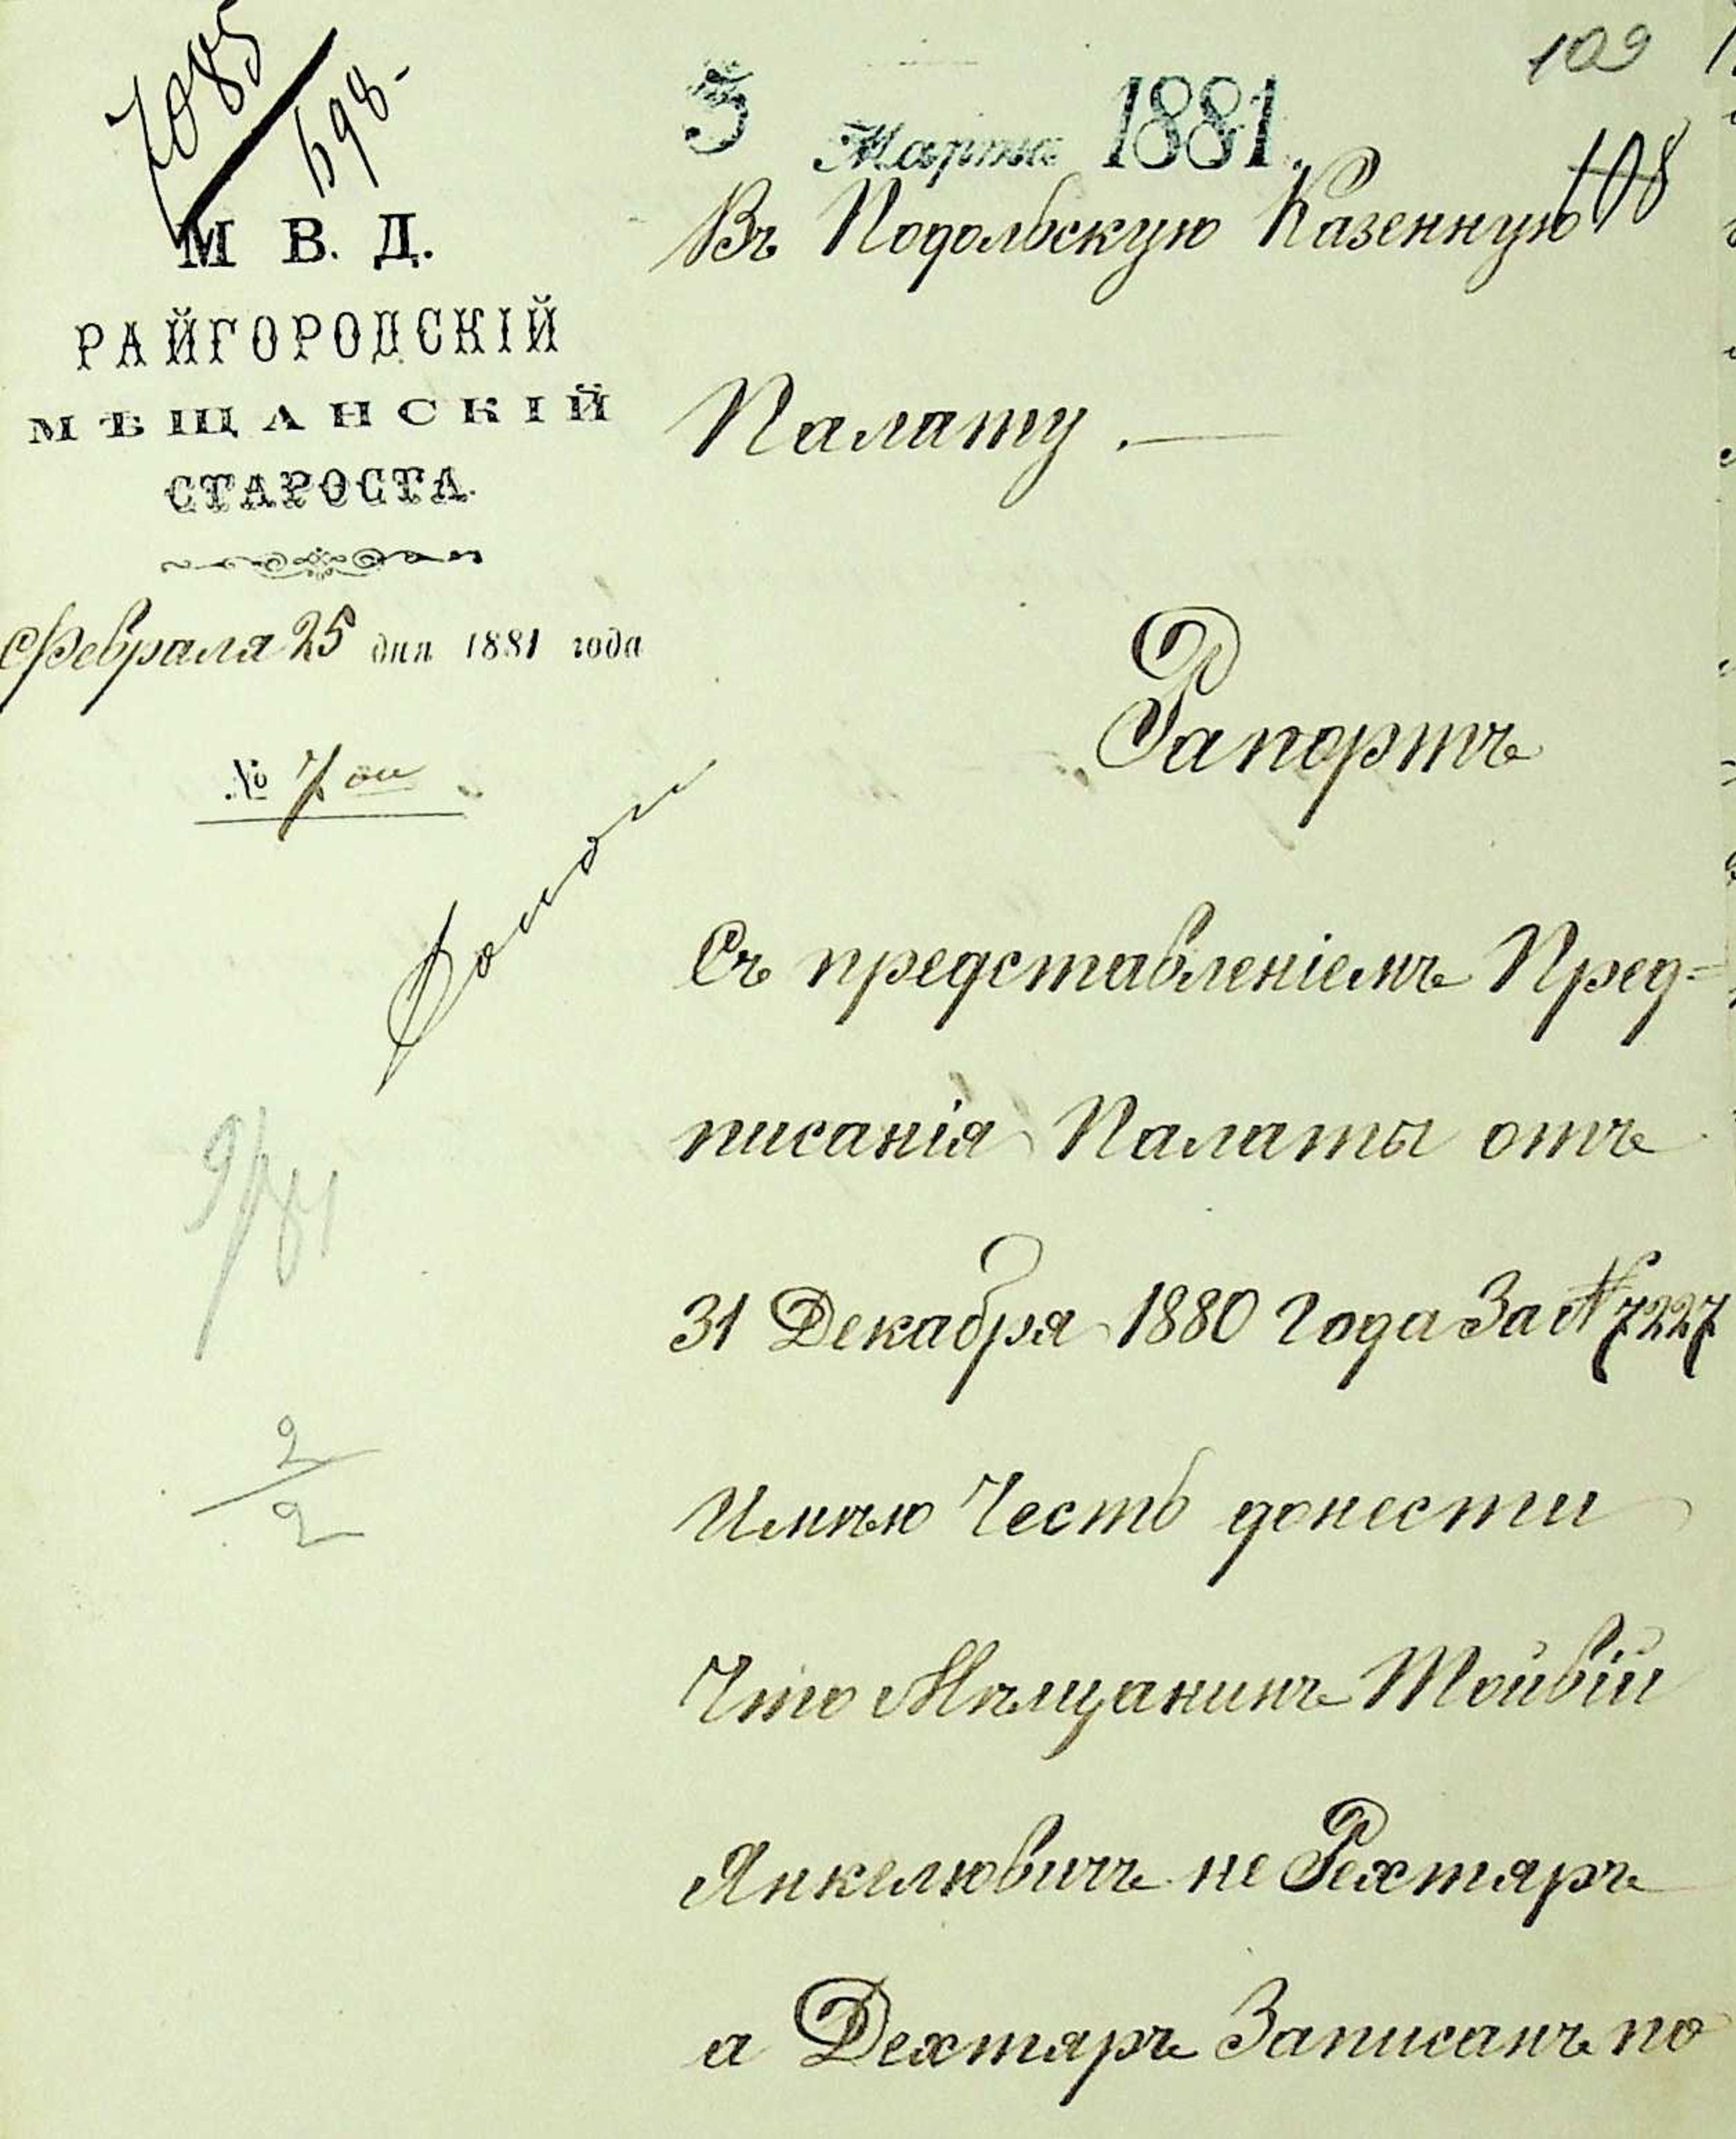 7085
698.
М В. Д.
РАЙГОРОДСКІЙ
МѢЩАНСКІЙ
СТАРОСТА.
Февраля 25 дня 1881 года
№ 7ой
109
108
5 Марта 1881.
Въ Подольскую Казенную
Палату.
Рапортъ
Съ представленіемъ Пред-
писанія Палаты отъ
31 Декабря 1880 Года За № 7227
Имѣю Честь донести
Что Мѣщанинъ Мойвій
Янкелювичъ не Рехтяръ
а Дехтяръ Записанъ по
9/81
2/2